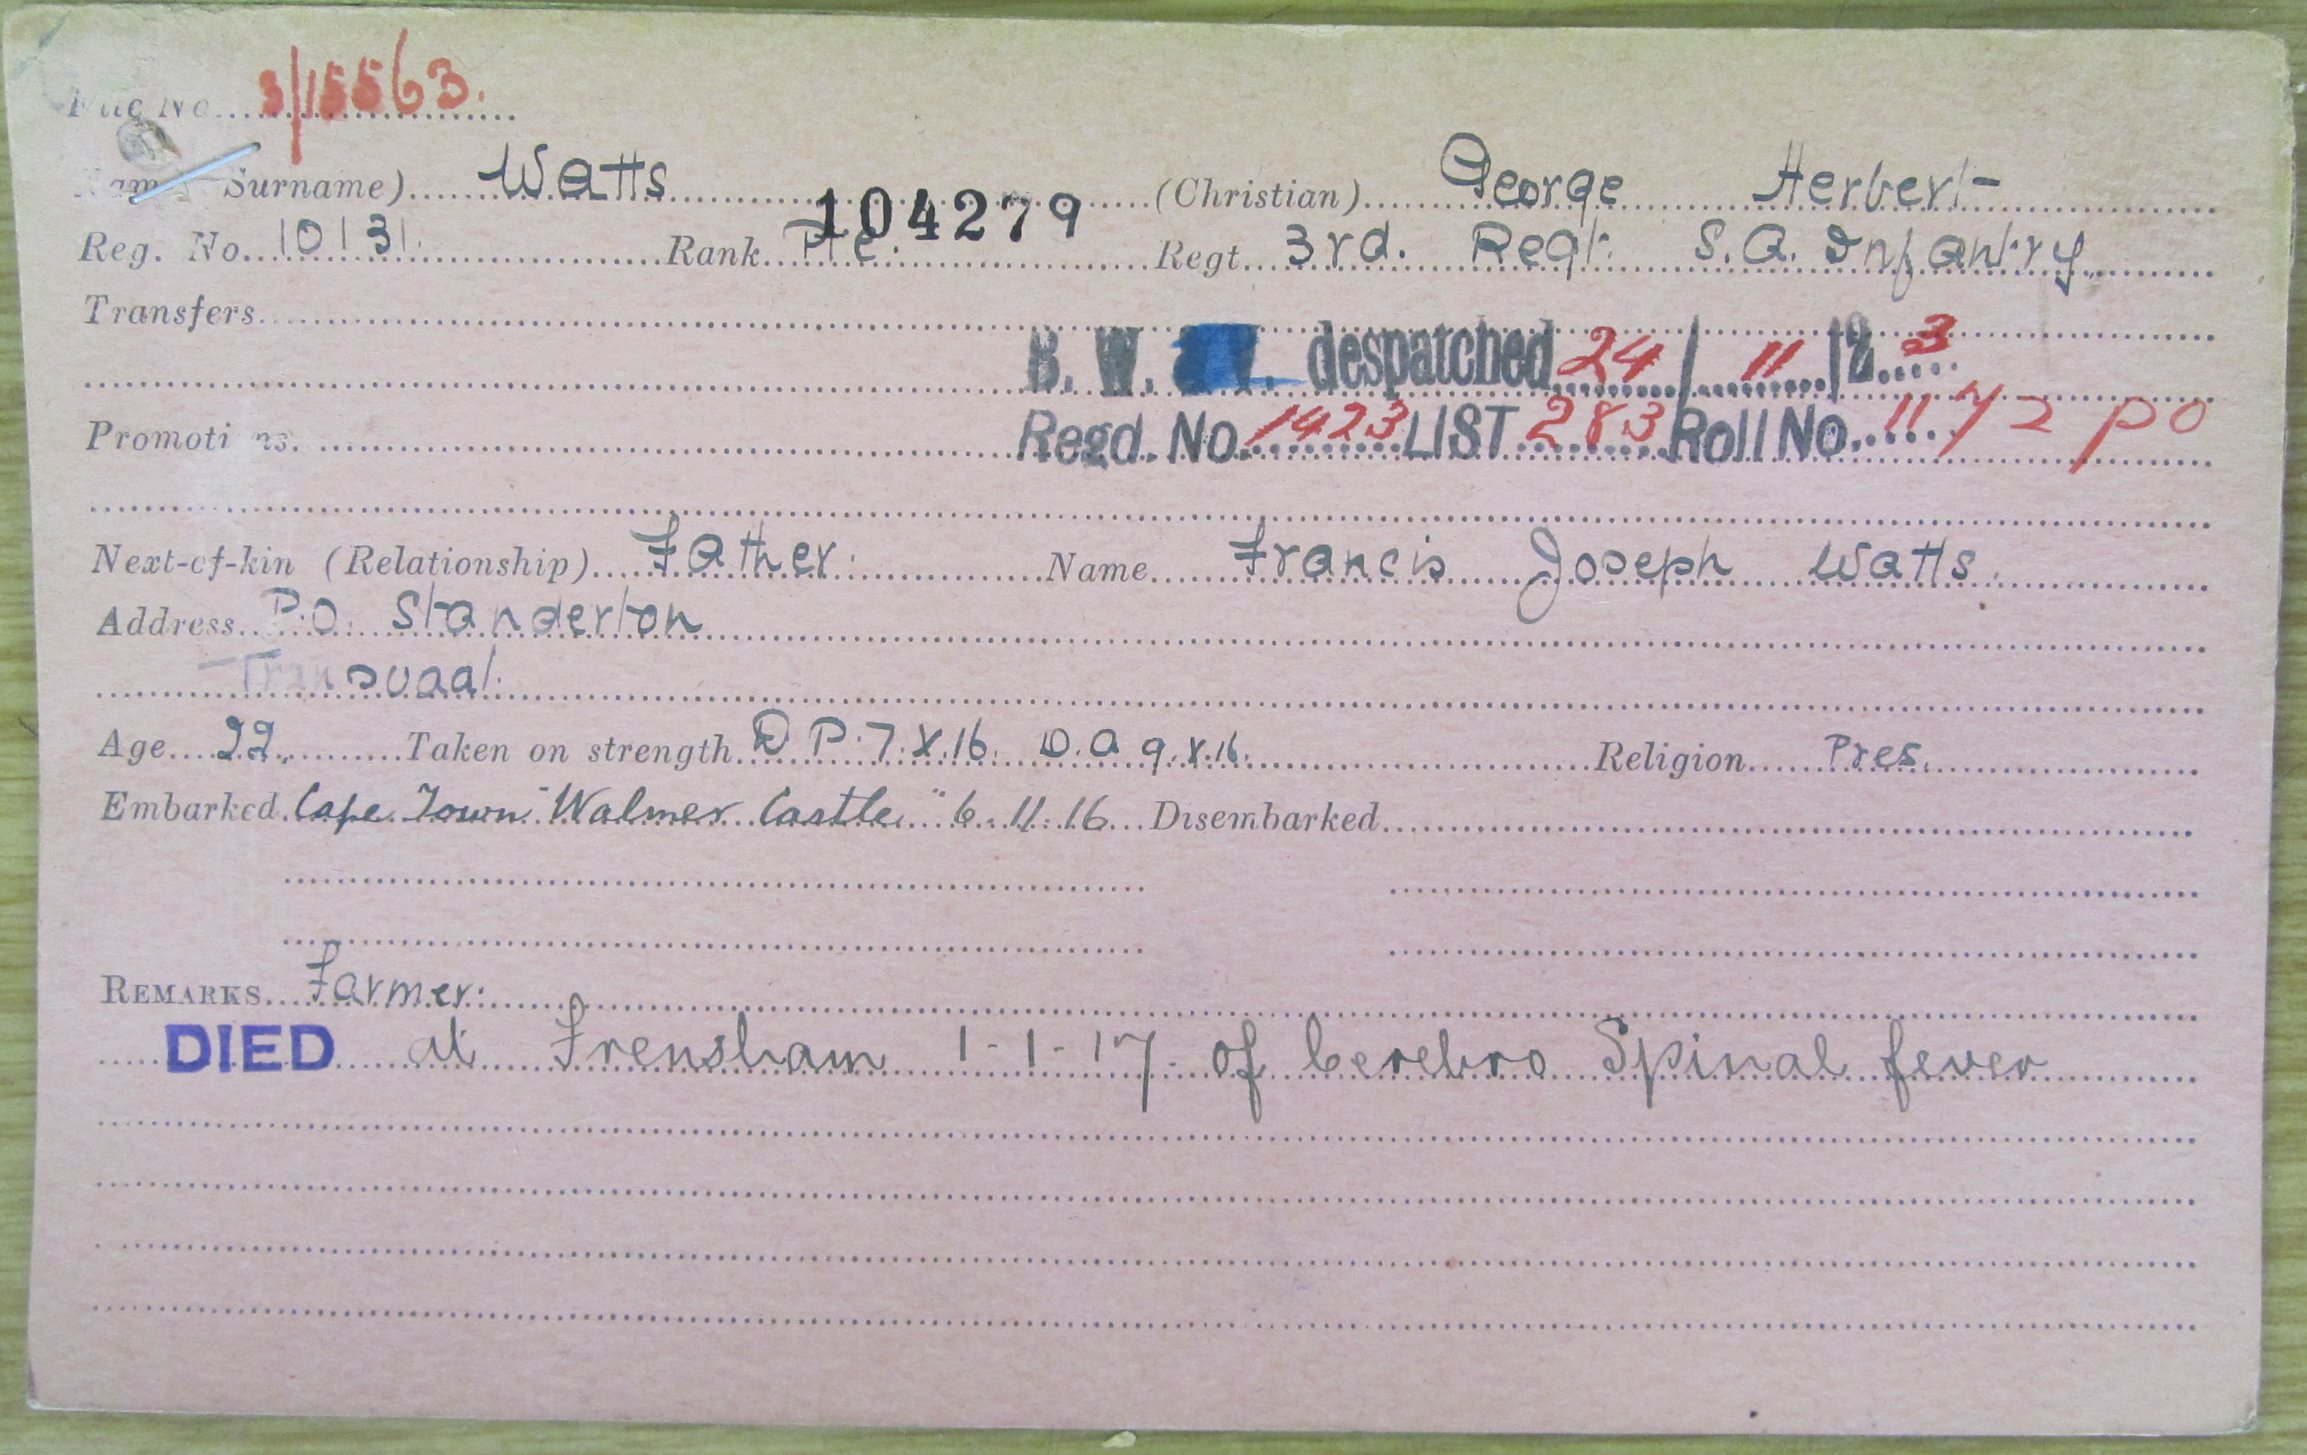 File No. 3/15563.
Name (Surname) Watts (Christian) George Herbert
104279
Reg. No. 10131. Rank Pte. Regt. 3rd. Regt. S.A. Infantry.
Transfers
B. W. despatched 24/11/23
Promotions. Regd. No. 1423 LIST 283 Roll No. 1172 PO
Next-of-kin (Relationship) Father. Name Francis Joseph Watts.
Address P.O. Standerton
Transvaal.
Age 22. Taken on strength D.P. 7.X.16. D.A 9.X.16. Religion Pres.
Embarked Cape Town "Walmer Castle" 6.11.16 Disembarked
REMARKS Farmer.
DIED at Frensham 1-1-17 of Cerebro Spinal fever